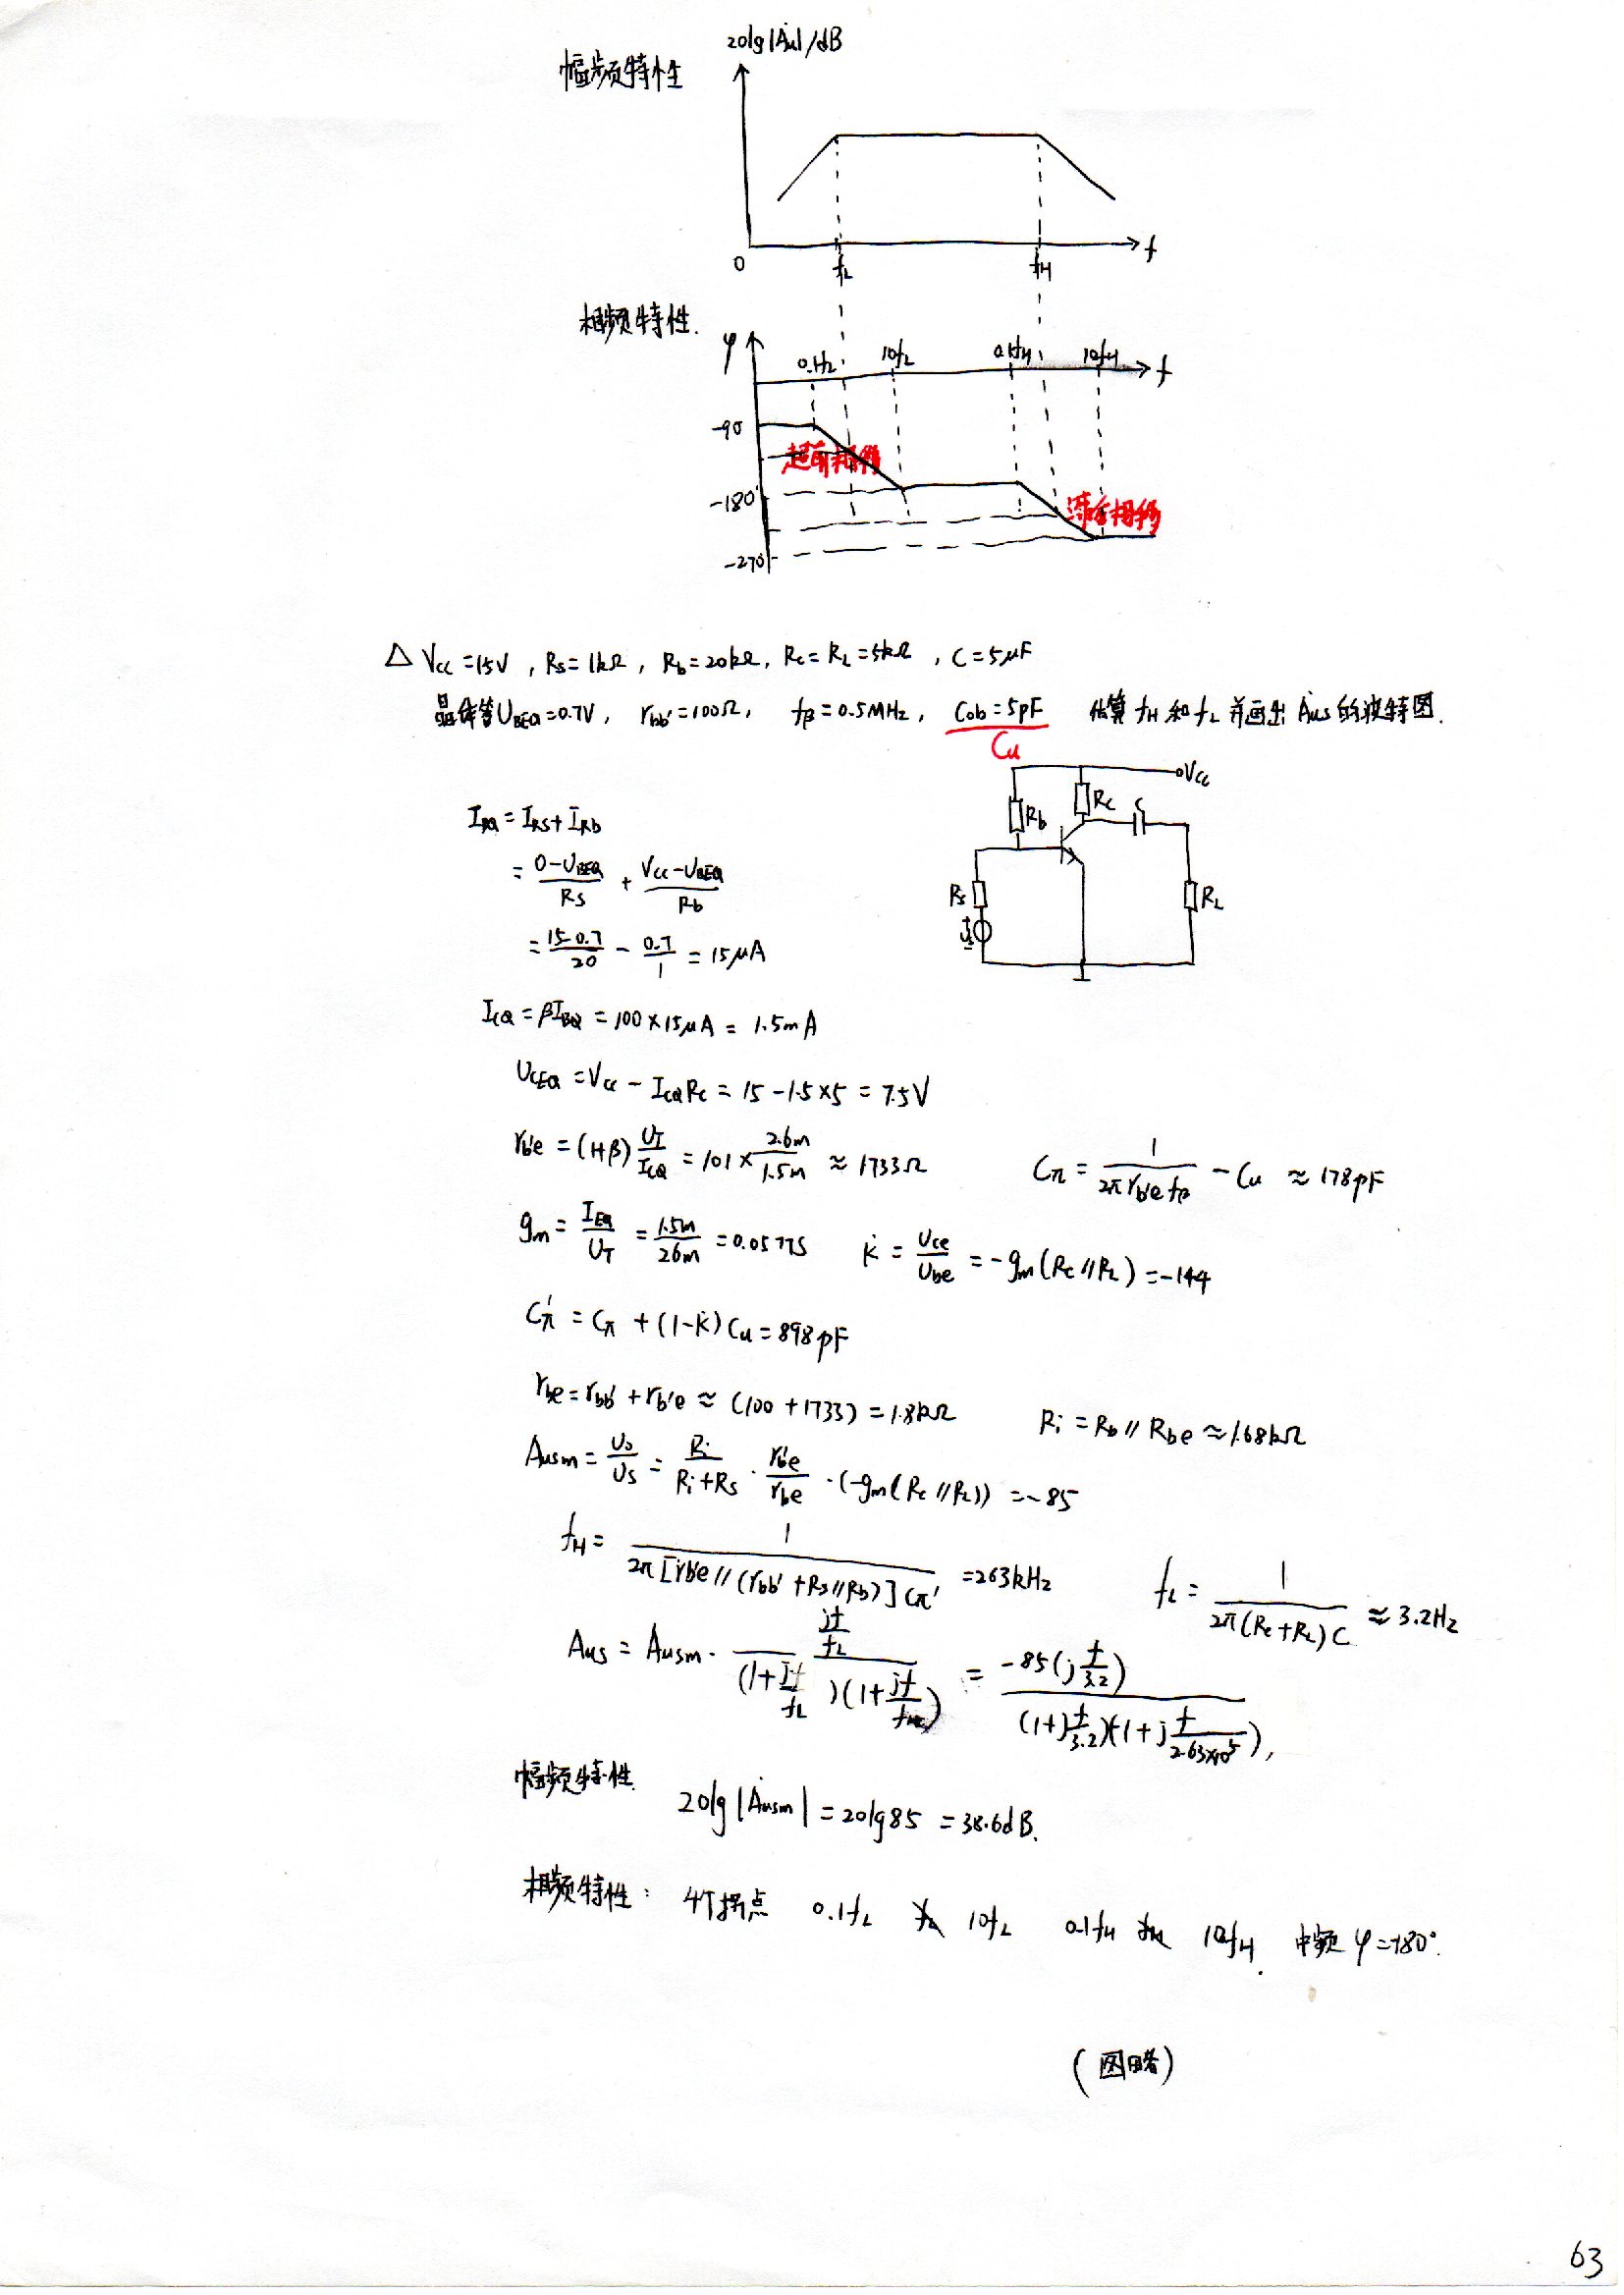 20lg|Au|/dB
幅频特性
0 fL fH f
相频特性.
φ
0.1fL 10fL 0.1fH 10fH f
-90
超前相移
-180°
滞后相移
-270°
△ Vcc=15V , Rs=1kΩ, Rb=20kΩ, Rc=RL=5kΩ , C=5μF
晶体管UBEQ=0.7V, rbb'=100Ω, fβ=0.5MHz, Cob=5pF 估算fH和fL并画出Aus的波特图.
Cu
Vcc
Rb Rc C
Rs Us RL
IBQ=IRs+IRb
= (0-UBEQ)/Rs + (Vcc-UBEQ)/Rb
= (15-0.7)/20 - 0.7/1 = 15μA
ICQ=βIBQ=100×15μA= 1.5mA
UCEQ=Vcc-ICQRc=15-1.5×5=7.5V
rb'e=(1+β)UT/ICQ=101×2.6m/1.5m≈1733Ω Cπ=1/(2πrb'efβ)-Cu≈178pF
gm=IEQ/UT=1.5m/26m=0.0577S K̇=Uce/Ube=-gm(Rc//RL)=-144
Cπ'=Cπ+(1-K̇)Cu=898pF
rbe=rbb'+rb'e≈(100+1733)=1.8kΩ Ri=Rb//Rbe≈1.68kΩ
Ausm=Uo/Us=Ri/(Ri+Rs)·rb'e/rbe·(-gm(Rc//RL))=-85
fH=1/(2π[rb'e//(rbb'+Rs//Rb)]Cπ')=263kHz fL=1/(2π(Rc+RL)C)≈3.2Hz
Aus=Ausm·(jf/fL)/((1+jf/fL)(1+jf/fH))=-85(jf/3.2)/((1+jf/3.2)(1+jf/(2.63×10^5))),
幅频特性.
20lg|Ȧusm|=20lg85=38.6dB.
相频特性: 4个拐点 0.1fL 10fL 0.1fH 10fH. 中频φ=-180°.
(图略)
63